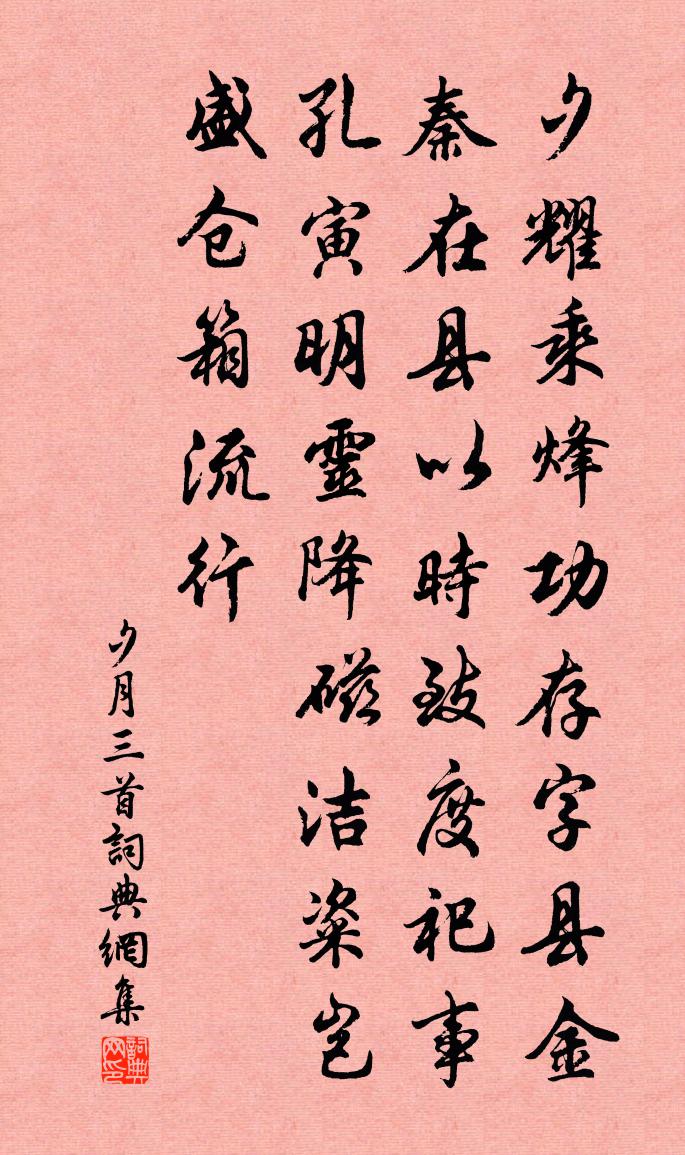 夕耀乘烽功存字县金
秦在县以時致度祀事
孔寅明靈降磁洁粢岂
盛仓箱流行
夕月三首詞典網集
詞典网印